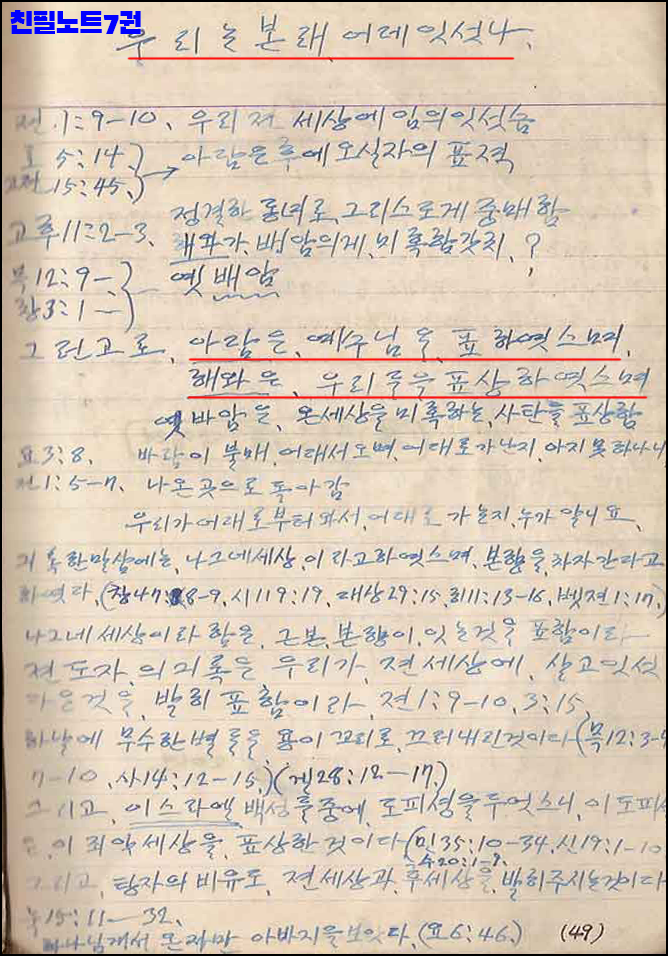 친필노트7권
우리는 본래, 어데 잇섯나.
전.1:9-10. 우리 전 세상에 임의 잇섯슴
로 5:14.
고전 15:45. } → 아담은 후에 오실자의 표적
정결한 동녀로, 그리스도게 중매함
고후11:2-3. 해와가, 배암의게, 미혹함갓치, ?
묵12:9-
창3:1- } 옛 배암
그런고로, 아담은, 예수님을, 표하엿스며,
해와은, 우리들을 표상하엿스며
옛 바암은, 온세상을 미혹하는, 사탄을 표상함
요3:8. 바람이 불매, 어대서 오며, 어대로 가난지, 아지 못하나니
전1:5-7. 나온 곳으로 돌아감
우리가 어대로부터 와서, 어대로 가는지, 누가 알니요.
기록한 말삼에는, 나그네세상, 이라고 하엿스며, 본향을, 차자간다고
하엿다. (창47:8-9, 시119:19, 대상29:15, 히11:13-16, 벳전1:17,)
나그네 세상이라 함은, 근본, 본향이, 잇는것을 표함이라
전도자, 의 기록은 우리가, 전세상에, 살고 잇섯
다은것을, 발히 표함이라, 전1:9-10, 3:15,
하날에 무수한 별들을 용이 꼬리로, 끄러내린것이다 (묵12:3-4
7-10, 사14:12-15,) (겔28:12-17,)
그리고, 이스라엘 백성들중에, 도피셩을 두엇스니, 이 도피셩
은, 이 죄악세상을, 표상한 것이다 (민35:10-34, 신19:1-10
수20:1-9.
그리고, 탕자의 비유도, 전세상과, 후세상을, 발히주시는것이다
눅15:11-32.
하나님게서 온자만 아바지을 보앗다, (요6:46,) (49)